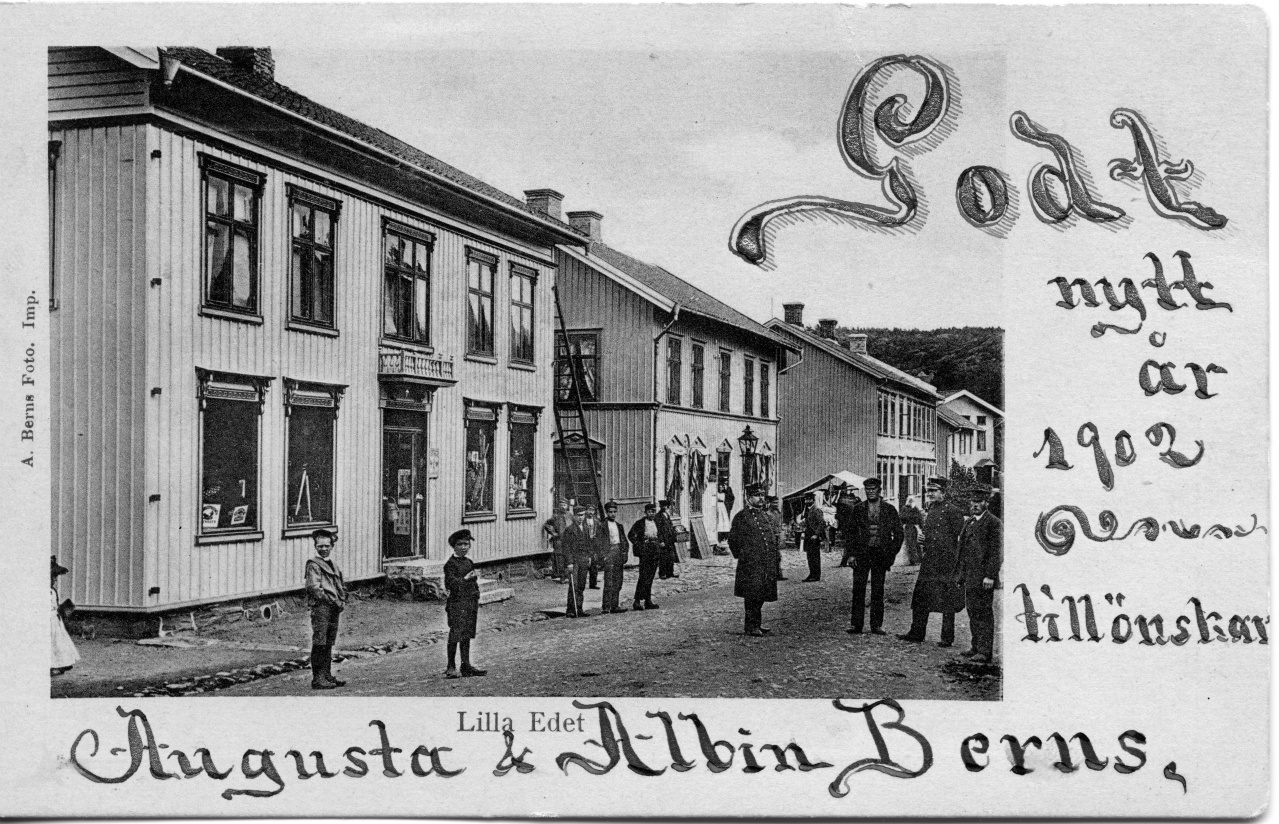 Godt
nytt
år
1902
tillönskar
Lilla Edet
Augusta & Albin Berns,
A. Berns Foto. Imp.